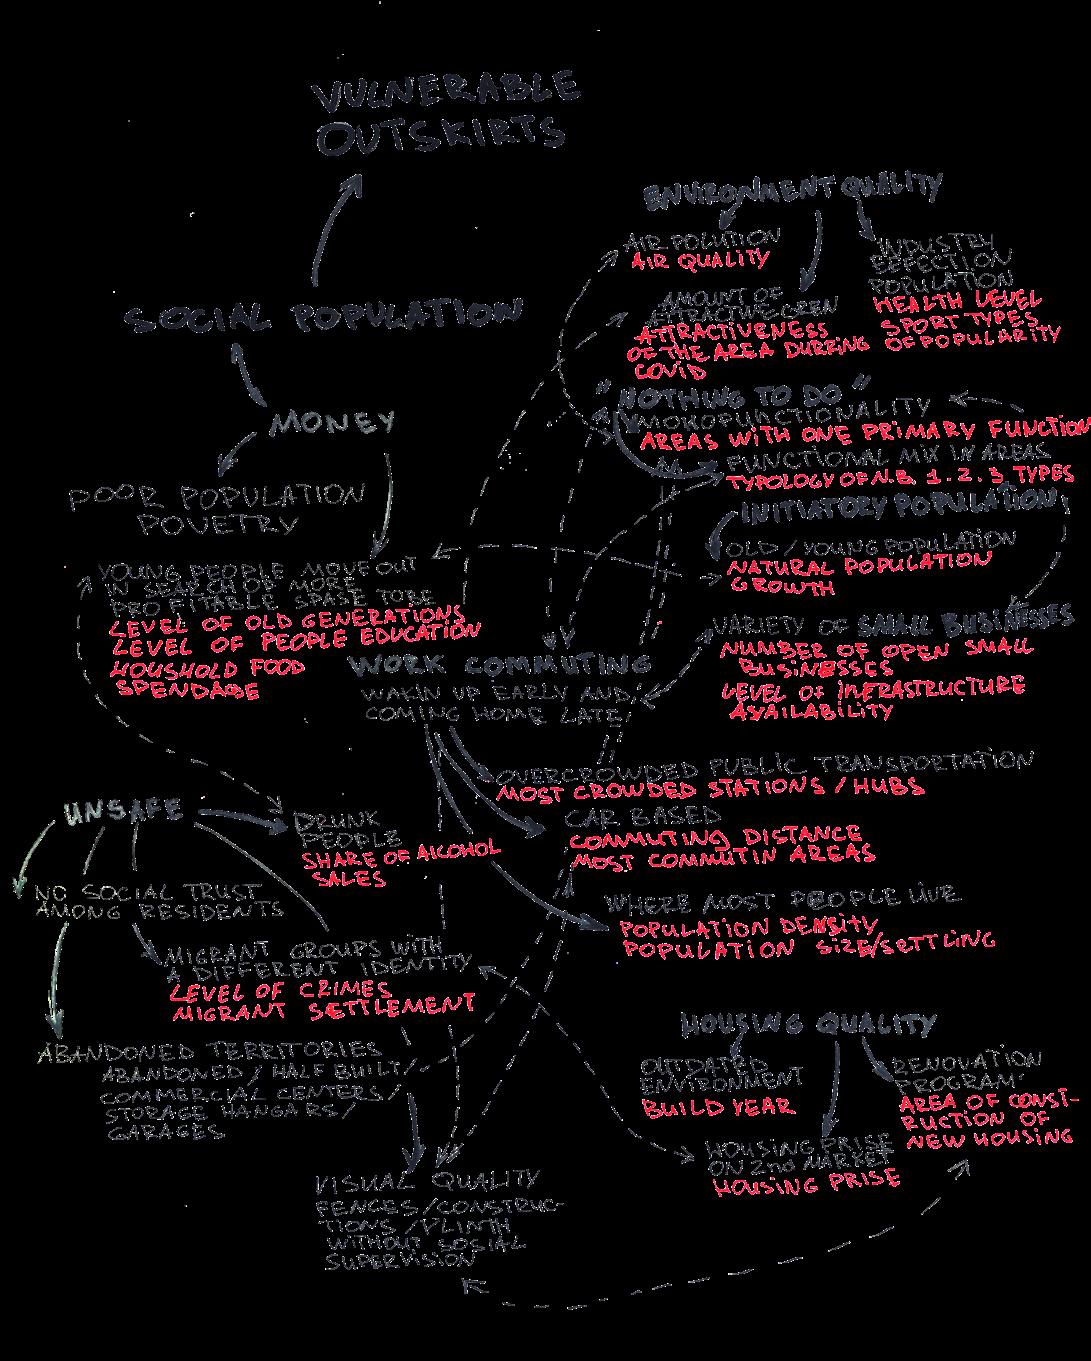 VULNERABLE
OUTSKIRTS
SOCIAL POPULATION
MONEY
POOR POPULATION
POVETRY
YOUNG PEOPLE MOVE OUT
IN SEARCH OF MORE
PROFITABLE SPASE TO BE
LEVEL OF OLD GENERATIONS
LEVEL OF PEOPLE EDUCATION
HOUSHOLD FOOD
SPENDAGE
ENVIRONMENT QUALITY
AIR POLUTION
AIR QUALITY
AMOUNT OF
ATTRACTIVE GREEN
ATTRACTIVENESS
OF THE AREA DURRING
COVID
INDUSTRY
EFFECTION
POPULATION
HEALTH LEVEL
SPORT TYPES
OF POPULARITY
"NOTHING TO DO"
MONOFUNCTIONALITY
AREAS WITH ONE PRIMARY FUNCTION
FUNCTIONAL MIX IN AREAS
TYPOLOGY OF N.B. 1. 2. 3. TYPES
INITIATORY POPULATION
OLD / YOUNG POPULATION
NATURAL POPULATION
GROWTH
VARIETY OF SMALL BUSINESSES
NUMBER OF OPEN SMALL
BUSINESSES
LEVEL OF INFRASTRUCTURE
AVAILABILITY
WORK COMMUTING
WAKIN UP EARLY AND
COMING HOME LATE
OVERCROWDED PUBLIC TRANSPORTATION
MOST CROWDED STATIONS / HUBS
CAR BASED
COMMUTING DISTANCE
MOST COMMUTIN AREAS
WHERE MOST PEOPLE LIVE
POPULATION DENSITY
POPULATION SIZE/SETTLING
UNSAFE
DRUNK
PEOPLE
SHARE OF ALCOHOL
SALES
NO SOCIAL TRUST
AMONG RESIDENTS
MIGRANT GROUPS WITH
A DIFFERENT IDENTITY
LEVEL OF CRIMES
MIGRANT SETTLEMENT
ABANDONED TERRITORIES
ABANDONED / HALF BUILT
COMMERCIAL CENTERS /
STORAGE HANGARS /
GARAGES
VISUAL QUALITY
FENCES / CONSTRUC-
TIONS / PLINTH
WITHOUT SOCIAL
SUPERVISION
HOUSING QUALITY
OUTDATED
ENVIRONMENT
BUILD YEAR
HOUSING PRISE
ON 2nd MARKET
HOUSING PRISE
RENOVATION
PROGRAM
AREA OF CONST-
RUCTION OF
NEW HOUSING